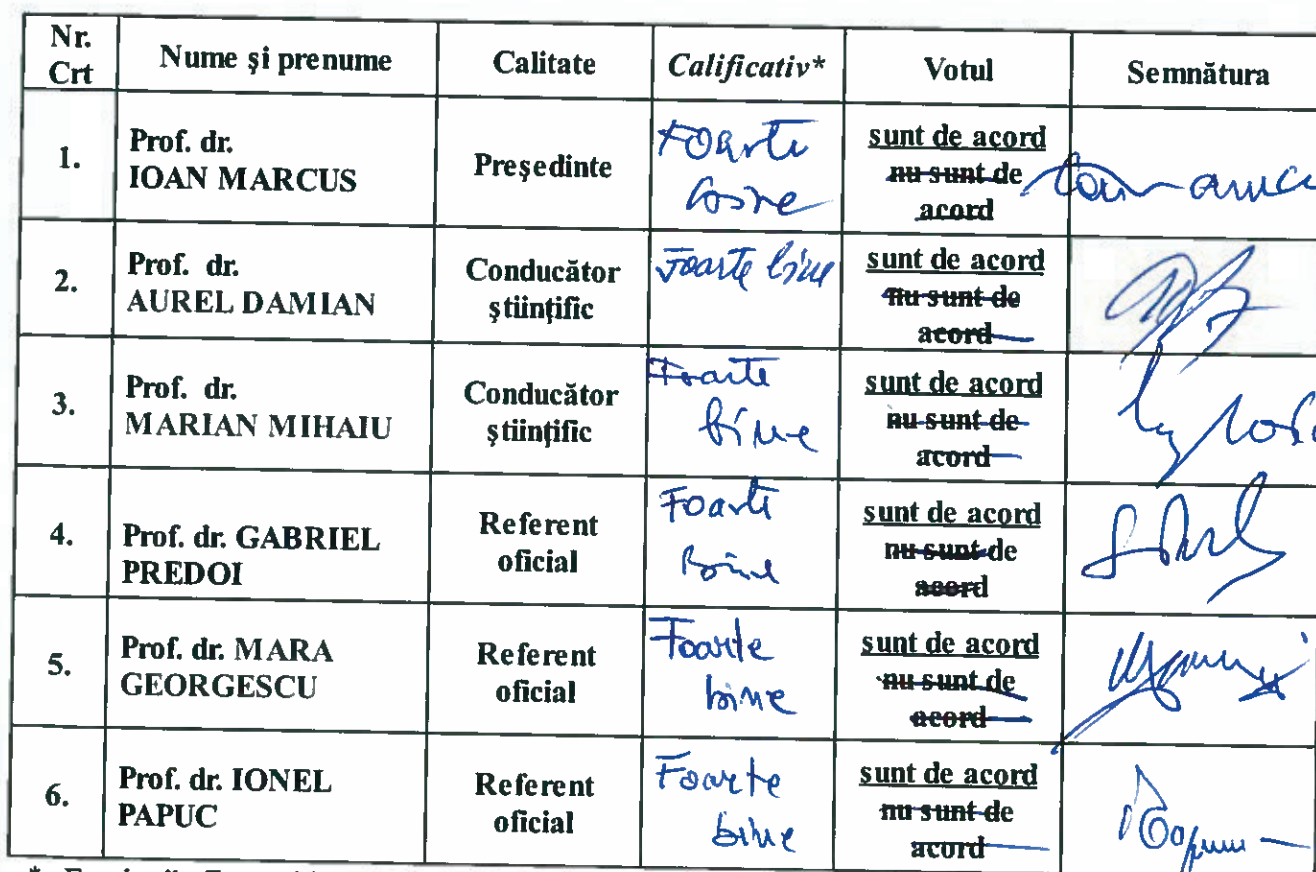 Nr. Crt | Nume și prenume | Calitate | Calificativ* | Votul | Semnătura
1. | Prof. dr. IOAN MARCUS | Președinte | Foarte bine | sunt de acord nu sunt de acord |
2. | Prof. dr. AUREL DAMIAN | Conducător științific | Foarte bine | sunt de acord nu sunt de acord |
3. | Prof. dr. MARIAN MIHAIU | Conducător științific | Foarte bine | sunt de acord nu sunt de acord |
4. | Prof. dr. GABRIEL PREDOI | Referent oficial | Foarte bine | sunt de acord nu sunt de acord |
5. | Prof. dr. MARA GEORGESCU | Referent oficial | Foarte bine | sunt de acord nu sunt de acord |
6. | Prof. dr. IONEL PAPUC | Referent oficial | Foarte bine | sunt de acord nu sunt de acord |